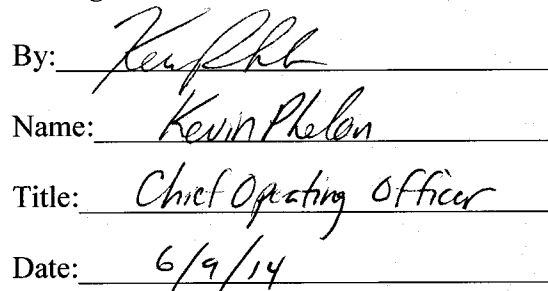 By:
Name: Kevin Phelan
Title: Chief Operating Officer
Date: 6/9/14